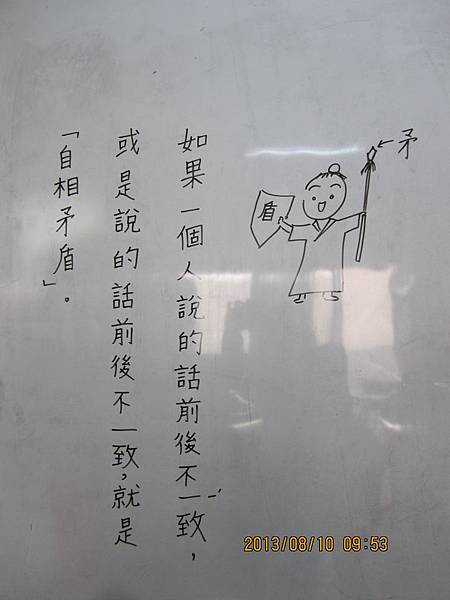 矛
盾
如果一個人說的話前後不一致，
或是說的話前後不一致，就是
「自相矛盾」。
2013/08/10 09:53